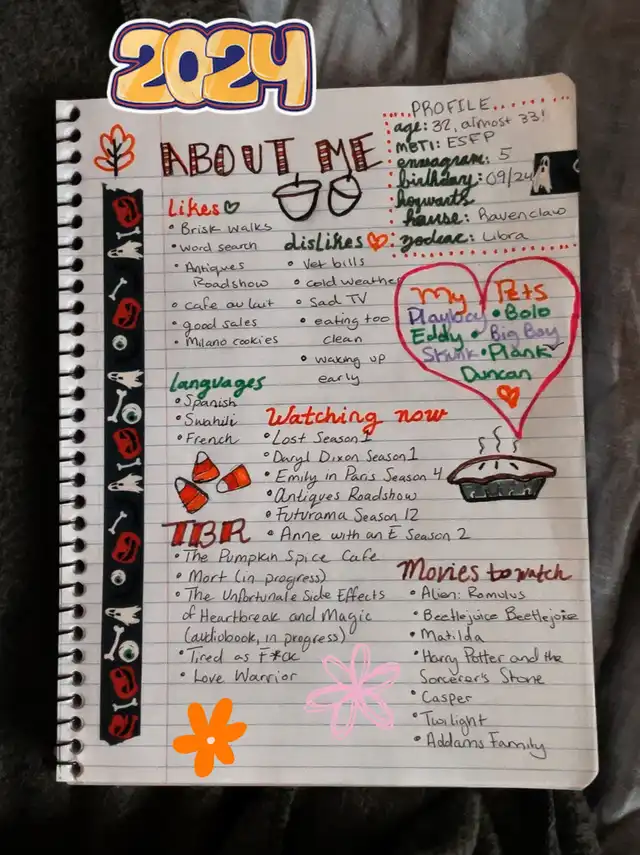 2024
ABOUT ME
PROFILE
age: 32, almost 33!
MBTI: ESFP
enneagram: 5
birthday: 09/24
hogwarts
house: Ravenclaw
zodiac: Libra
Likes
• Brisk walks
• word search
• Antiques
Roadshow
• cafe au lait
• good sales
• Milano cookies
dislikes
• Vet bills
• cold weather
• Sad TV
• eating too
clean
• waking up
early
My Pets
Playboy • Bolo
Eddy • Big Boy
Skunk • Plank
Duncan
languages
• Spanish
• Swahili
• French
Watching now
• Lost Season 1
• Daryl Dixon Season 1
• Emily in Paris Season 4
• Antiques Roadshow
• Futurama Season 12
• Anne with an E Season 2
TBR
• The Pumpkin Spice Cafe
• Mort (in progress)
• The Unfortunate Side Effects
of Heartbreak and Magic
(audiobook, in progress)
• Tired as F*ck
• Love Warrior
Movies to watch
• Alien: Romulus
• Beetlejuice Beetlejuice
• Matilda
• Harry Potter and the
Sorcerer's Stone
• Casper
• Twilight
• Addams Family